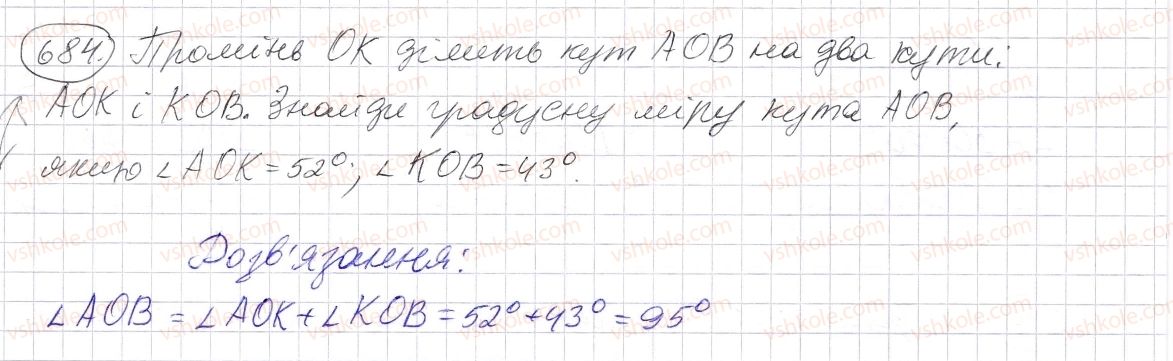 684. Промінь OK ділить кут AOB на два кути:
AOK і KOB. Знайди градусну міру кута AOB,
якщо ∠AOK = 52°; ∠KOB = 43°.
Розв'язання:
∠AOB = ∠AOK + ∠KOB = 52° + 43° = 95°